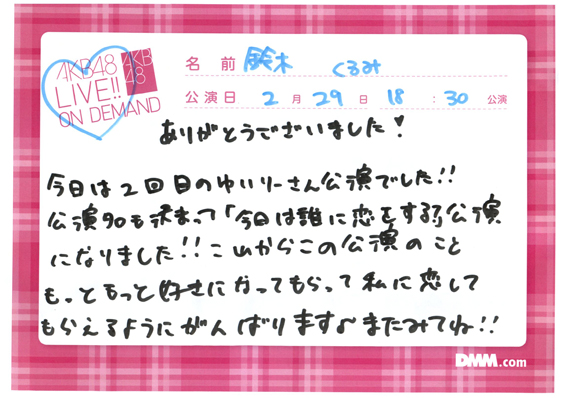 AKB48
LIVE!!
ON DEMAND
AKB
48
名 前 鈴木 くるみ
公演日 2 月 29 日 18 : 30 公演
ありがとうございました!
今日は2回目のゆいりーさん公演でした!!
公演名も決まって「今日は誰に恋をする?」公演
になりました!!これからこの公演のこと
もっともっと好きになってもらって私に恋して
もらえるようにがんばります♪またみてね!!
DMM.com